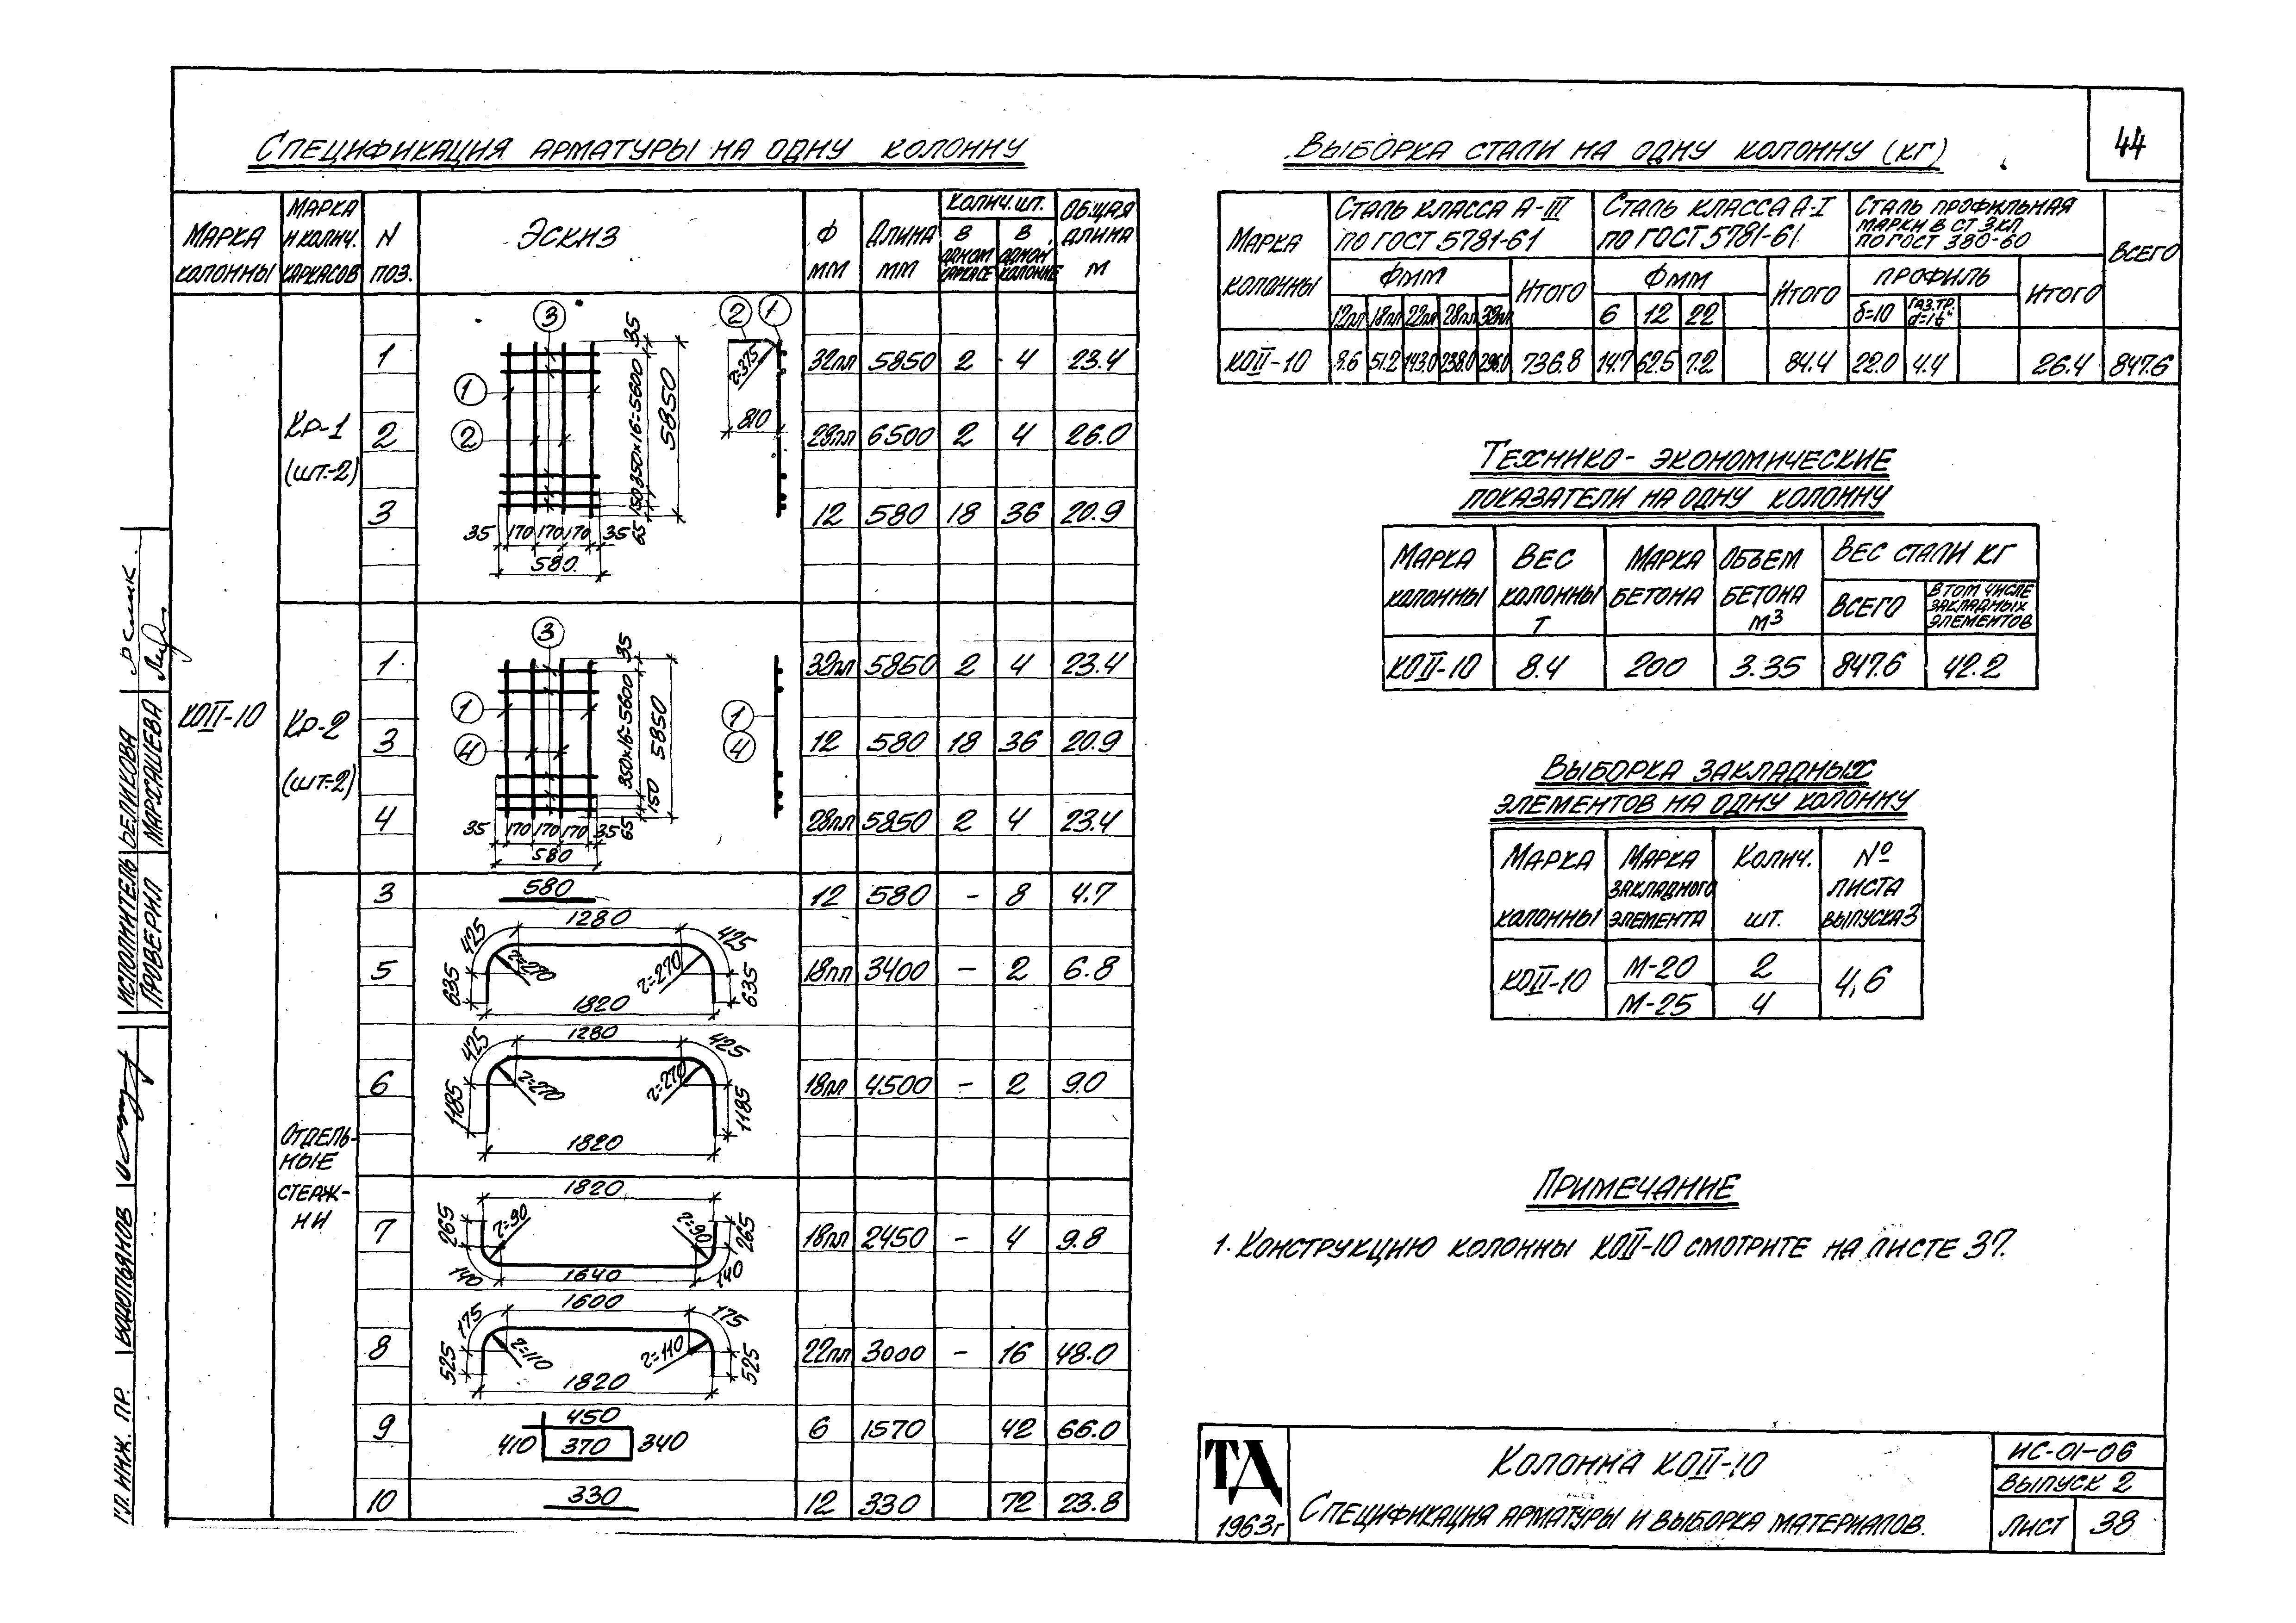 44
Спецификация арматуры на одну колонну
Марка колонны
Марка и колич. каркасов
N поз.
Эскиз
Ф мм
Длина мм
Колич. шт.
в одном каркасе
в одной колонне
Общая длина м
КОII-10
Кр-1
(шт.-2)
1 32пл 5850 2 4 23.4
2 28пл 6500 2 4 26.0
3 12 580 18 36 20.9
3
1
2
35
350×16=5600
150
65
5850
35 170 170 170 35
580
2 1
r=375
810
Кр-2
(шт-2)
1 32пл 5850 2 4 23.4
3 12 580 18 36 20.9
4 28пл 5850 2 4 23.4
3
1
4
35
350×16=5600
150
65
5850
35 170 170 170 35
580
1
4
Отдель-
ные
стерж-
ни
3 580 12 580 – 8 4.7
1280
425 425
r=270 r=270
635 635
1820
5 18пл 3400 – 2 6.8
1280
425 425
r=270 r=270
1185 1185
1820
6 18пл 4500 – 2 9.0
1820
265 r=90 r=90 265
140 1640 140
7 18пл 2450 – 4 9.8
1600
175 175
r=110 r=110
525 525
1820
8 22пл 3000 – 16 48.0
450
410 370 340
9 6 1570 42 66.0
10 330 12 330 72 23.8
Выборка стали на одну колонну (кг)
Марка колонны
Сталь класса А-III по ГОСТ 5781-61
Сталь класса А-I по ГОСТ 5781-61
Сталь профильная марки В Ст 3кп по ГОСТ 380-60
Всего
Фмм Итого Фмм Итого Профиль Итого
12пл 18пл 22пл 28пл 32пл 6 12 22 δ=10 газ.тр.
КОII-10 9.6 51.2 143.0 238.0 296.0 736.8 14.7 62.5 7.2 84.4 22.0 4.4 26.4 847.6
Технико-экономические
показатели на одну колонну
Марка колонны
Вес колонны т
Марка бетона
Объем бетона м3
Вес стали кг
Всего
В том числе закладных элементов
КОII-10 8.4 200 3.35 847.6 42.2
Выборка закладных
элементов на одну колонну
Марка колонны
Марка закладного элемента
Колич. шт.
№ листа выпуска 3
КОII-10 М-20 2 4,6
М-25 4
Примечание
1. Конструкцию колонны КОII-10 смотрите на листе 37.
ТД
1963г
Колонна КОII-10
Спецификация арматуры и выборка материалов.
ИС-01-06
Выпуск 2
Лист 38
Исполнитель Беликова
Проверил
Гл. инж. пр. Водопьянов